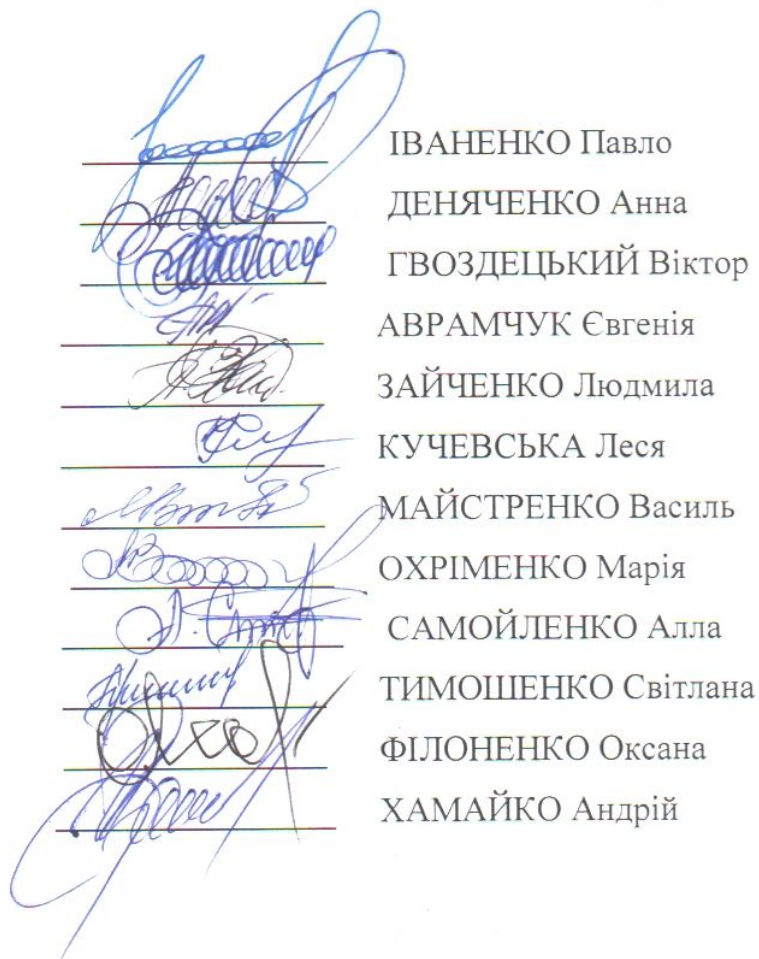 ІВАНЕНКО Павло
ДЕНЯЧЕНКО Анна
ГВОЗДЕЦЬКИЙ Віктор
АВРАМЧУК Євгенія
ЗАЙЧЕНКО Людмила
КУЧЕВСЬКА Леся
МАЙСТРЕНКО Василь
ОХРІМЕНКО Марія
САМОЙЛЕНКО Алла
ТИМОШЕНКО Світлана
ФІЛОНЕНКО Оксана
ХАМАЙКО Андрій